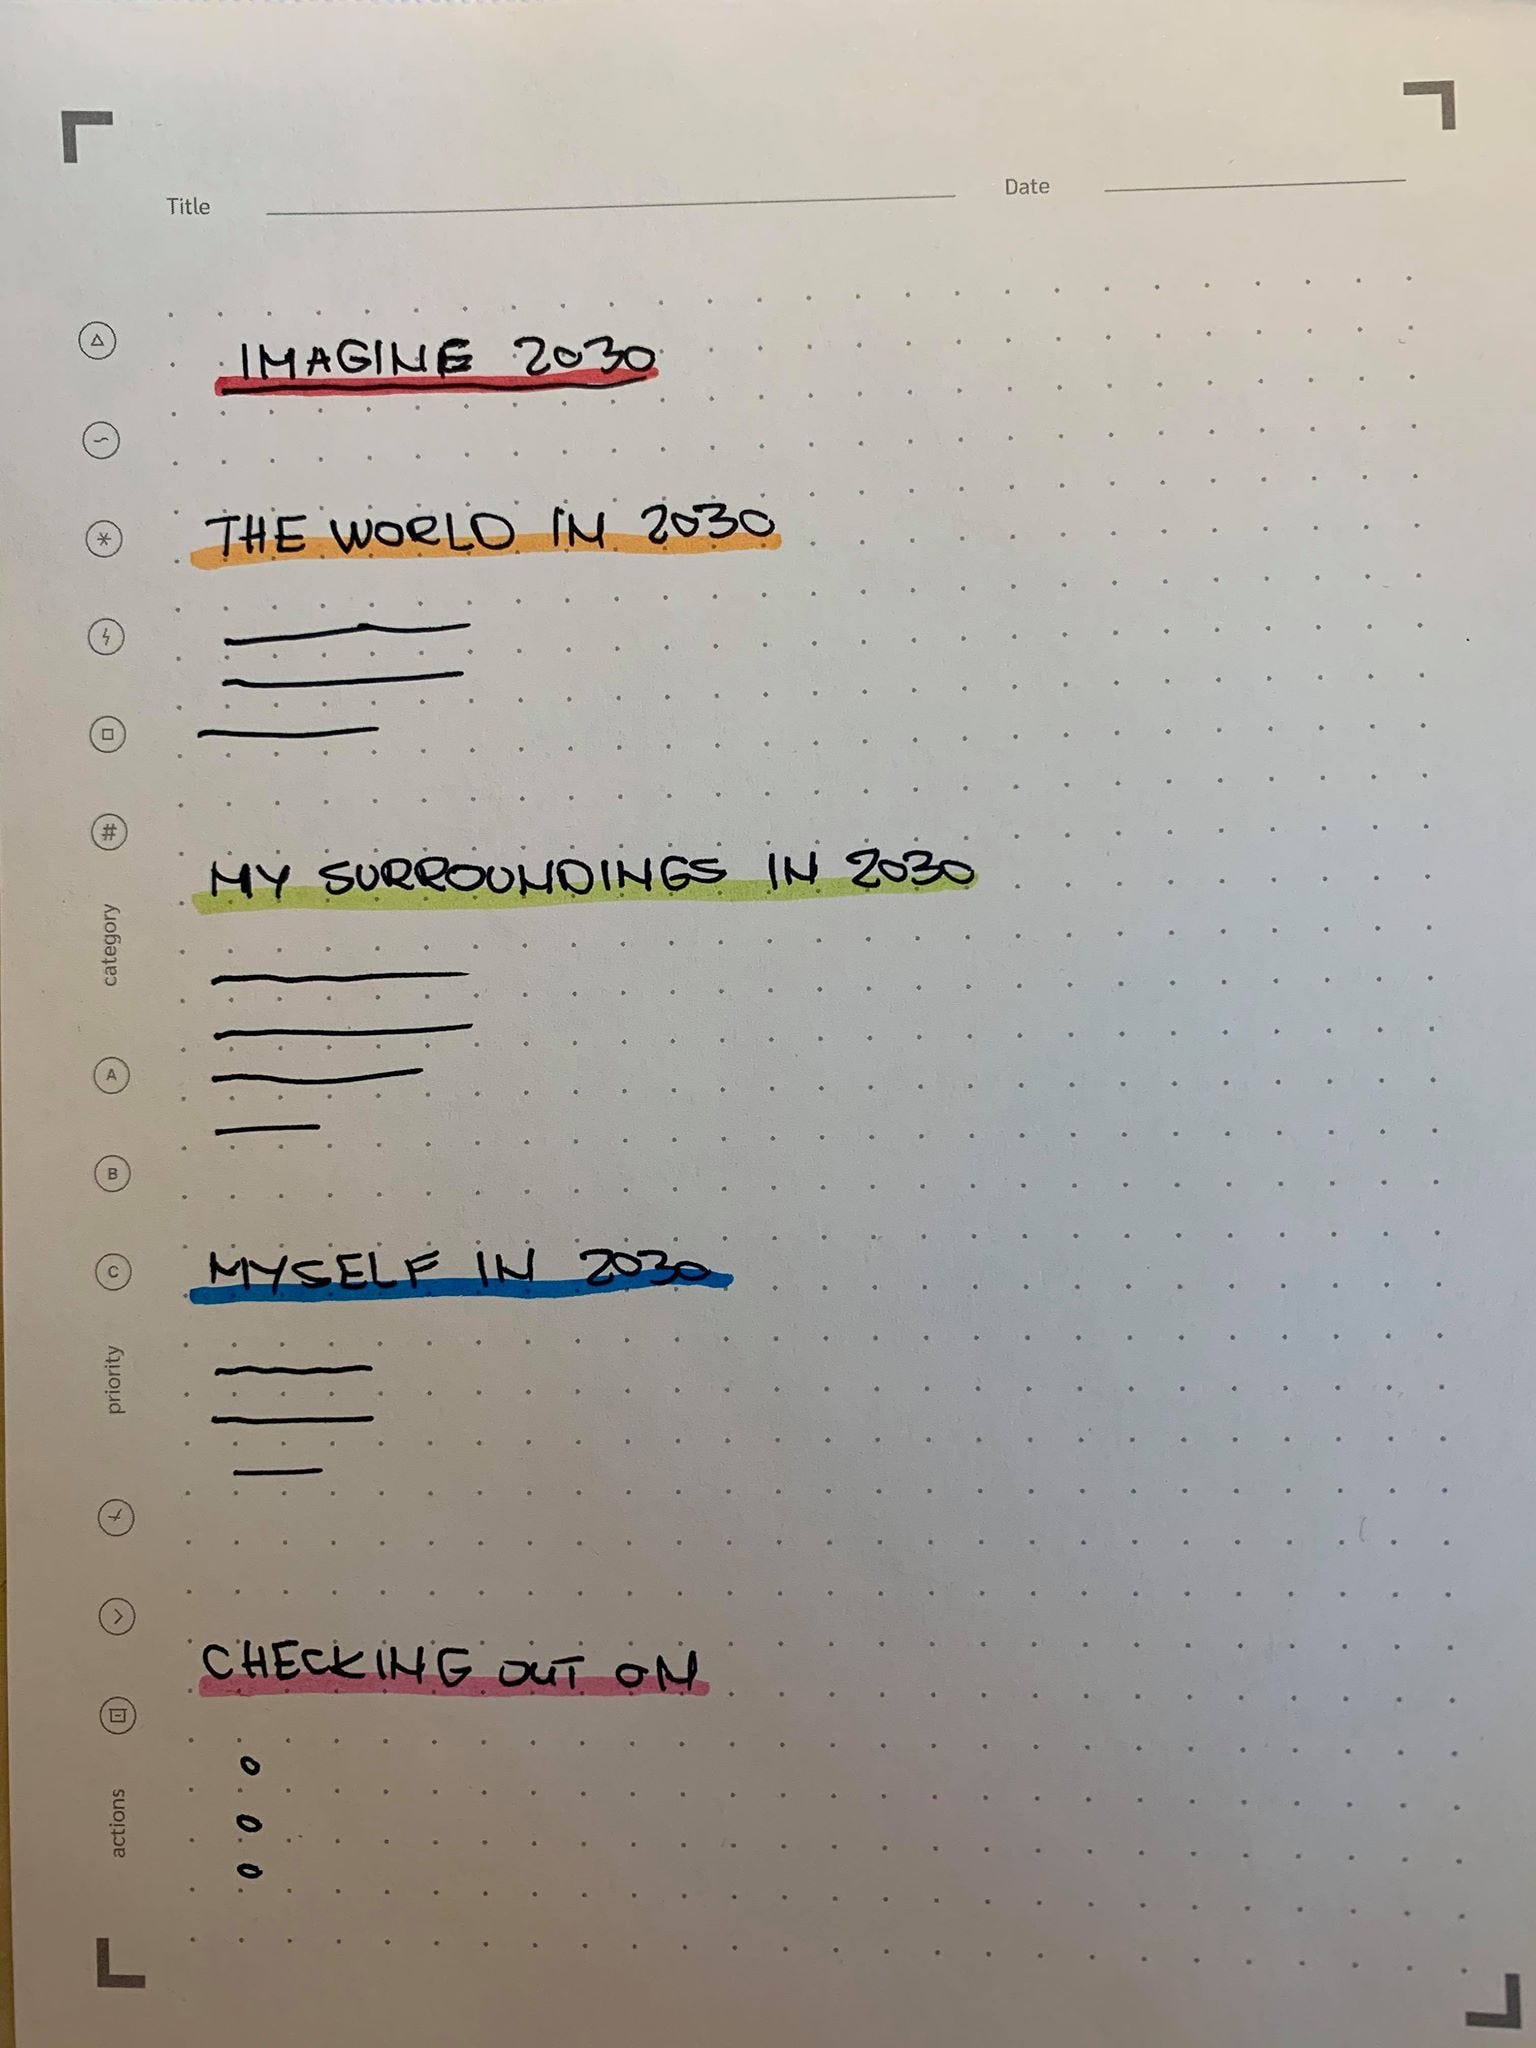 Title Date
IMAGINE 2030
THE WORLD IN 2030
#
MY SURROUNDINGS IN 2030
category
A
B
C
MYSELF IN 2030
priority
CHECKING OUT ON
actions